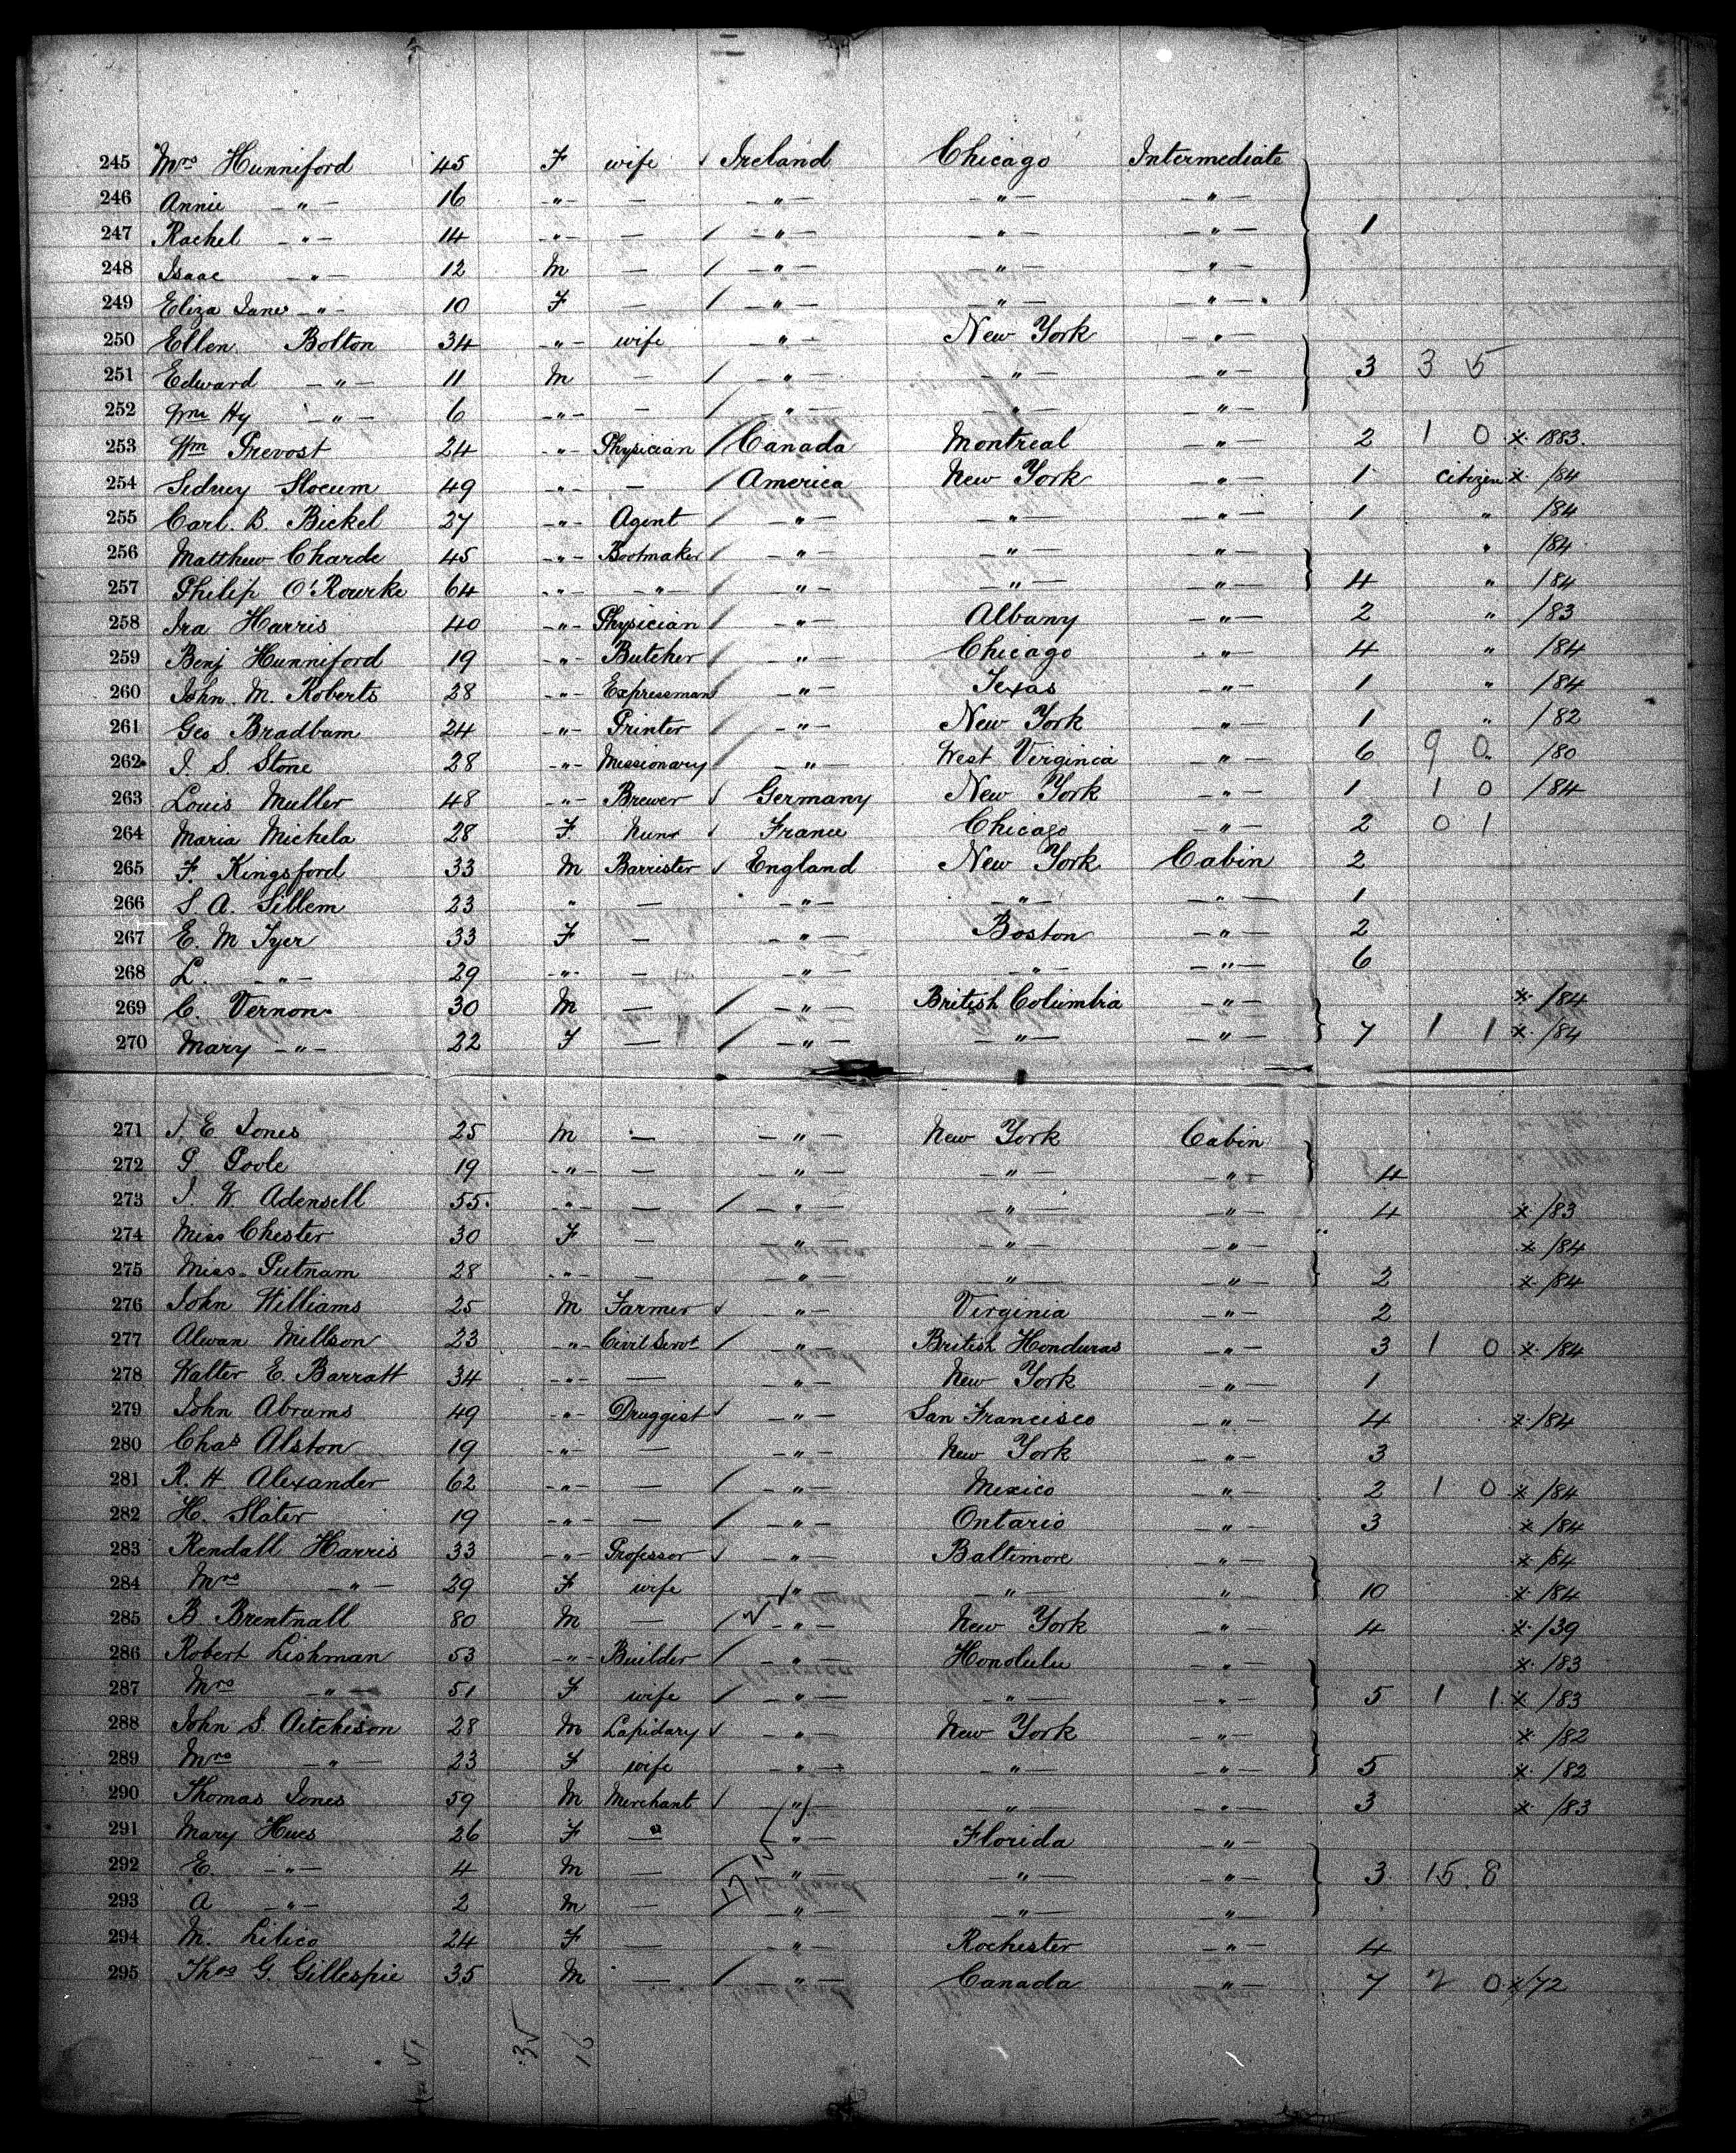 245 Mrs Hunniford 45 F wife Ireland Chicago Intermediate
246 Annie —"— 16 —"— — —"— —"— —"—
247 Rachel —"— 14 —"— — / —"— —"— —"— 1
248 Isaac —"— 12 M — / —"— —"— —"—
249 Eliza Jane —"— 10 F — / —"— —"— —"—
250 Ellen Bolton 34 —"— wife —"— New York —"—
251 Edward —"— 11 M — / —"— —"— —"— 3 3 5
252 Wm Hy —"— 6 —"— — / —"— —"— —"—
253 Wm Prevost 24 —"— Physician / Canada Montreal —"— 2 1 0 x 1883.
254 Sidney Slocum 49 —"— — / America New York —"— 1 citizen x /84
255 Carl. B. Bickel 27 —"— Agent / —"— —"— —"— 1 " /84
256 Matthew Charde 45 —"— Bootmaker / —"— —"— —"— " /84
257 Philip O'Rourke 64 —"— —"— / —"— —"— —"— 4 " /84
258 Ira Harris 40 —"— Physician / —"— Albany —"— 2 " /83
259 Benj Hunniford 19 —"— Butcher / —"— Chicago —"— 4 " /84
260 John. M. Roberts 28 —"— Expressman / —"— Texas —"— 1 " /84
261 Geo Bradbam 24 —"— Printer / —"— New York —"— 1 " /82
262 J. S. Stone 28 —"— Missionary / —"— West Virginia —"— 6 9 0 " /80
263 Louis Muller 48 —"— Brewer Germany New York —"— 1 1 0 /84
264 Maria Michela 28 F Nun France Chicago —"— 2 0 1
265 F. Kingsford 33 M Barrister England New York Cabin 2
266 S. A. Sillem 23 " — —"— —"— —"— 1
267 E. M Tyer 33 F — —"— Boston —"— 2
268 L. —"— 29 —"— — —"— —"— —"— 6
269 C. Vernon 30 M — / —"— British Columbia —"— x /84
270 Mary —"— 22 F — / —"— —"— —"— 7 1 1 x /84
271 J. E Jones 25 M — —"— New York Cabin
272 P. Poole 19 —"— — —"— —"— —"— 4
273 J. W. Adensell 55 —"— — / —"— —"— —"— 4 x /83
274 Miss Chester 30 F — —"— —"— —"— x /84
275 Miss Putnam 28 —"— — —"— —"— —"— 2 x /84
276 John Williams 25 M Farmer —"— Virginia —"— 2
277 Alwan Millson 23 —"— Civil Servt / —"— British Honduras —"— 3 1 0 x /84
278 Walter E. Barratt 34 —"— — —"— New York —"— 1
279 John Abrams 49 —"— Druggist —"— San Francisco —"— 4 x /84
280 Chas Alston 19 —"— — —"— New York —"— 3
281 R. H. Alexander 62 —"— — / —"— Mexico —"— 2 1 0 x /84
282 H. Slater 19 —"— — / —"— Ontario —"— 3 x /84
283 Rendall Harris 33 —"— Professor —"— Baltimore —"— x /84
284 Mrs —"— 29 F wife —"— —"— " 10 x /84
285 B. Brentnall 80 M — / —"— New York —"— 4 x /39
286 Robert Lishman 53 —"— Builder / —"— Honolulu —"— x /83
287 Mrs —"— 51 F wife / —"— —"— —"— 5 1 1 x /83
288 John S. Aitcheson 28 M Lapidary —"— New York —"— x /82
289 Mrs —"— 23 F wife —"— —"— —"— 5 x /82
290 Thomas Jones 59 M Merchant —"— —"— —"— 3 x /83
291 Mary Hues 26 F — —"— Florida —"—
292 E. —"— 4 M — —"— —"— " 3 15 8
293 A —"— 2 M — " —"— "
294 M. Lilico 24 F — —"— Rochester —"— 4
295 Thos G. Gillespie 35 M — / —"— Canada —"— 7 2 0 x /72
35 16